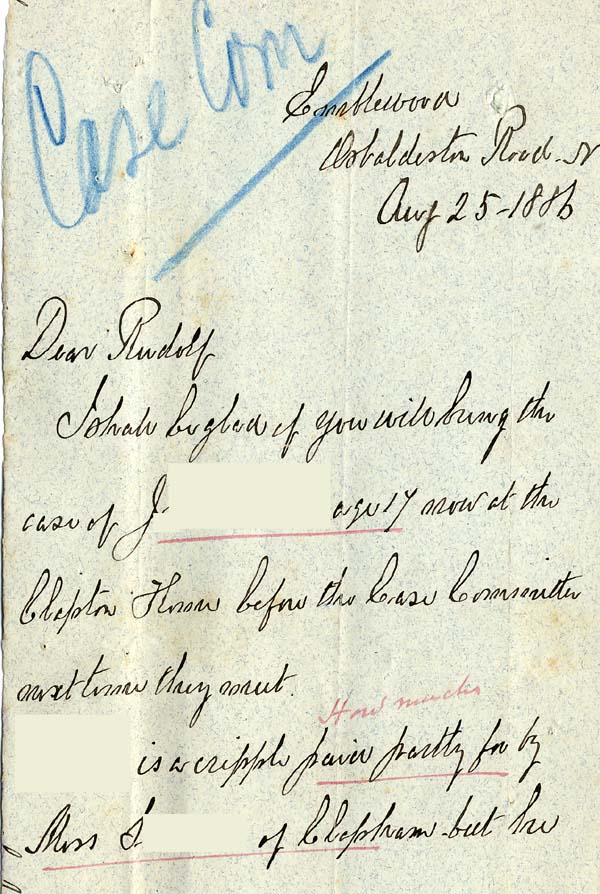 Case Com
Emblewood
Osbaldeston Road. N
Aug 25-1886
Dear Rudolf
I shall be glad if you will bring the
case of J. age 17 now at the
Clapton Home before the Case Committee
next time they meet.
How much
is a cripple paid partly for by
Miss S. of Clapham but he